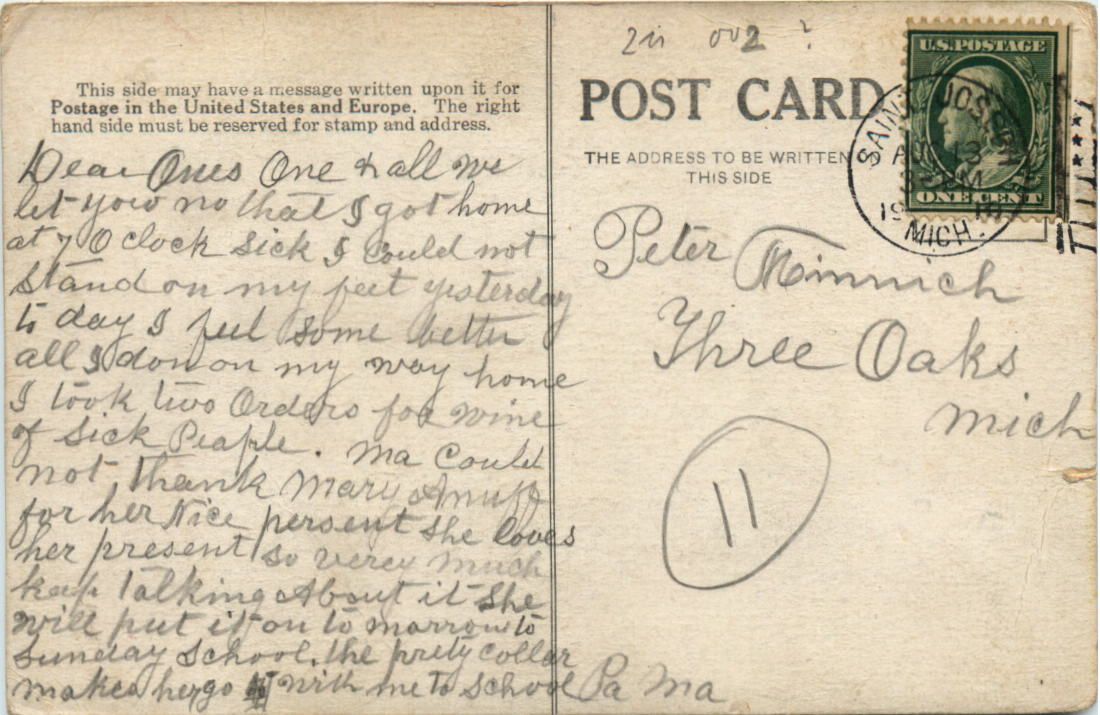 This side may have a message written upon it for
Postage in the United States and Europe. The right
hand side must be reserved for stamp and address.
Dear Ones One & all we
let yow no that I got home
at 7 O clock sick I could not
stand on my feet yesterday
to day I feel some better
all I don on my way home
I took two Orders for wine
of sick People. Ma Could
not thank Mary
for her Nice persent she loves
her present so verey much
keep talking About it she
will put it on to morrow to
sunday school. the prety collar
makes her go with me to school Pa Ma
2
POST CARD
THE ADDRESS TO BE WRITTEN
THIS SIDE
U.S. POSTAGE
ONE CENT
SAINT JOSEPH
AUG 13
M
19
MICH.
Peter
Three Oaks
Mich
11